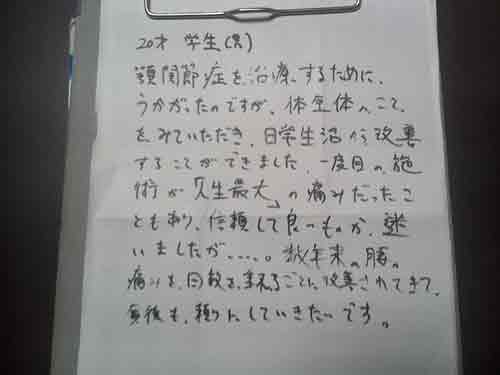 20才 学生(男)
顎関節症を治療するために、
うかがったのですが、体全体のこと
をみていただき、日常生活から改善
することができました。一度目の施
術が「人生最大」の痛みだったこ
ともあり、信頼して良いものか、迷
いましたが.....。数年来の腰の
痛みも、回数を重ねるごとに改善されてきて、
今後も、頼りにしていきたいです。